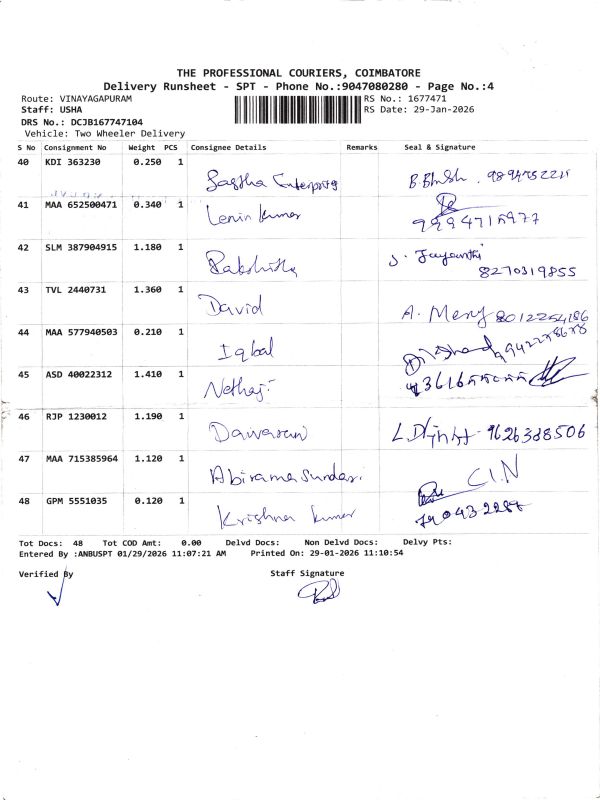 THE PROFESSIONAL COURIERS, COIMBATORE
Delivery Runsheet - SPT - Phone No.:9047080280 - Page No.:4
Route: VINAYAGAPURAM RS No.: 1677471
Staff: USHA RS Date: 29-Jan-2026
DRS No.: DCJB167747104
Vehicle: Two Wheeler Delivery
S No Consignment No Weight PCS Consignee Details Remarks Seal & Signature
40 KDI 363230 0.250 1 Sastha Enterprises
41 MAA 652500471 0.340 1 Lenin kumar
42 SLM 387904915 1.180 1 Rakshitha J. Jayanthi 8270319855
43 TVL 2440731 1.360 1 David A. Mery 8012254186
44 MAA 577940503 0.210 1 Iqbal
45 ASD 40022312 1.410 1 Nethaji
46 RJP 1230012 1.190 1 9626388506
47 MAA 715385964 1.120 1 Abirama Sundari C.I.N
48 GPM 5551035 0.120 1 Krishna kumar
Tot Docs: 48 Tot COD Amt: 0.00 Delvd Docs: Non Delvd Docs: Delvy Pts:
Entered By :ANBUSPT 01/29/2026 11:07:21 AM Printed On: 29-01-2026 11:10:54
Verified By Staff Signature